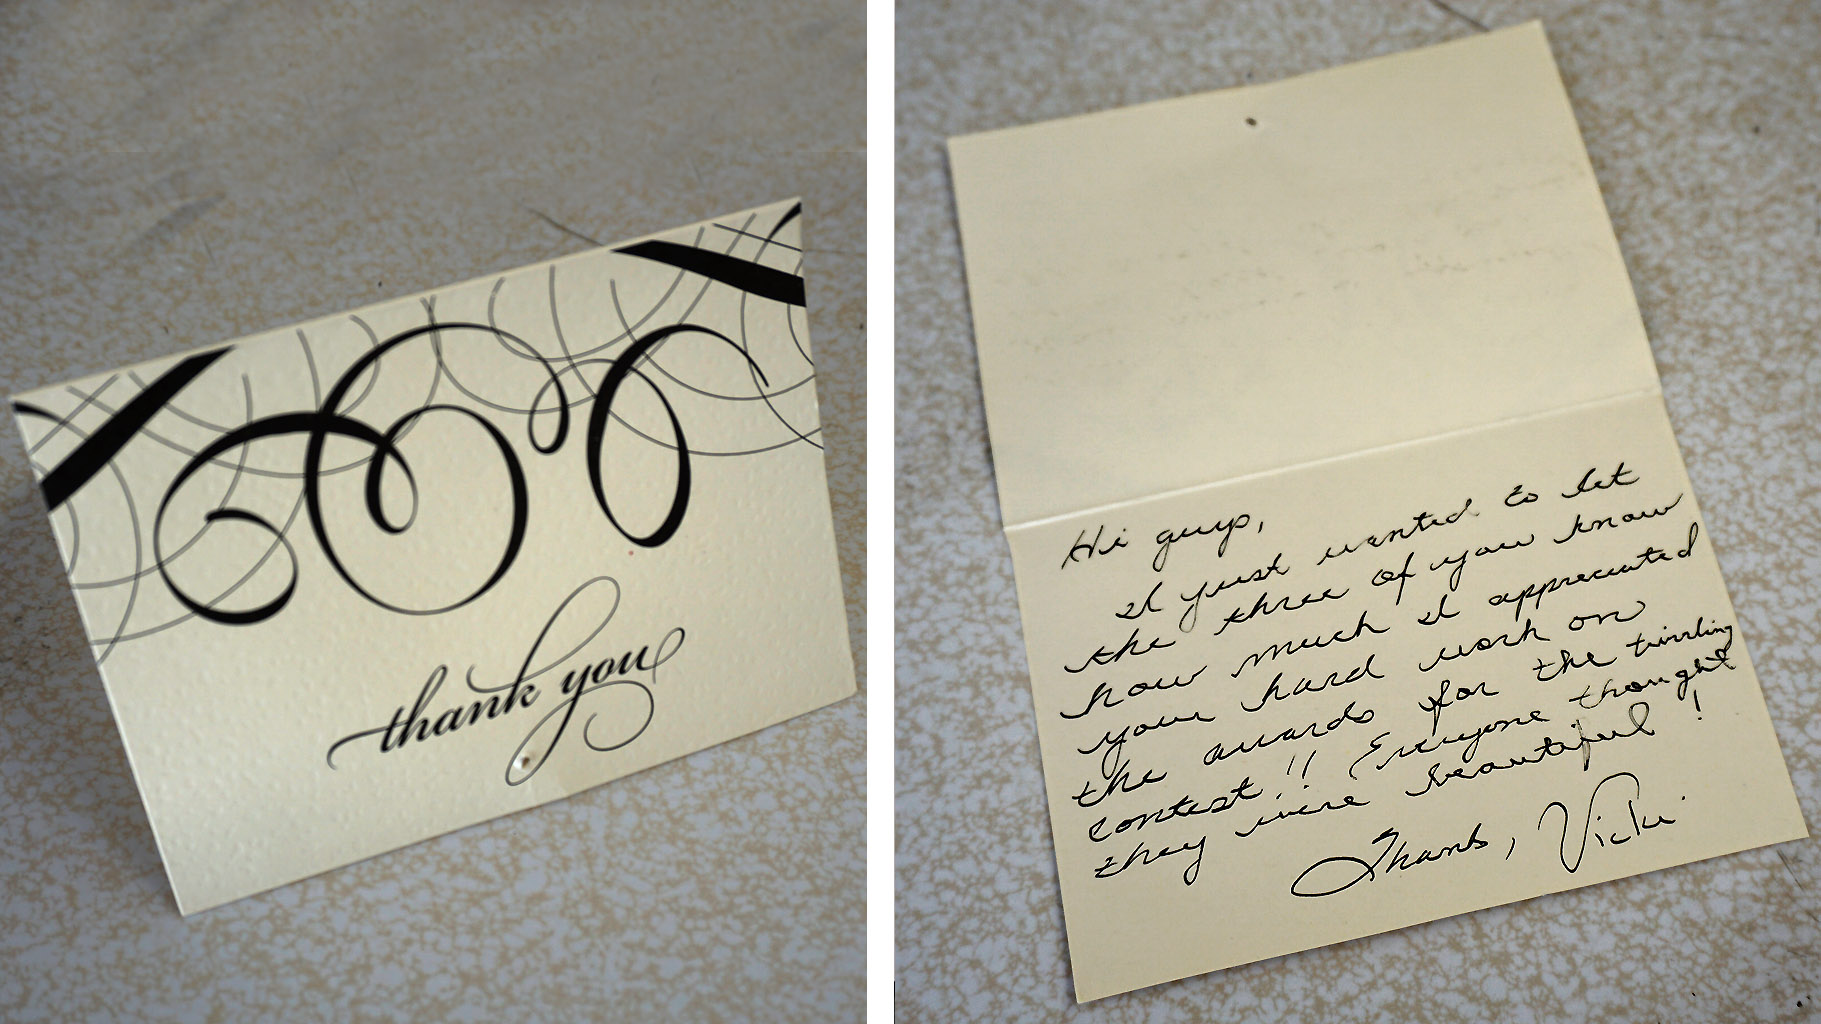 thank you
Hi guys,
I just wanted to let
the three of you know
how much I appreciated
your hard work on
the awards for the twirling
contest!! Everyone thought
they were beautiful!
Thanks, Vicki